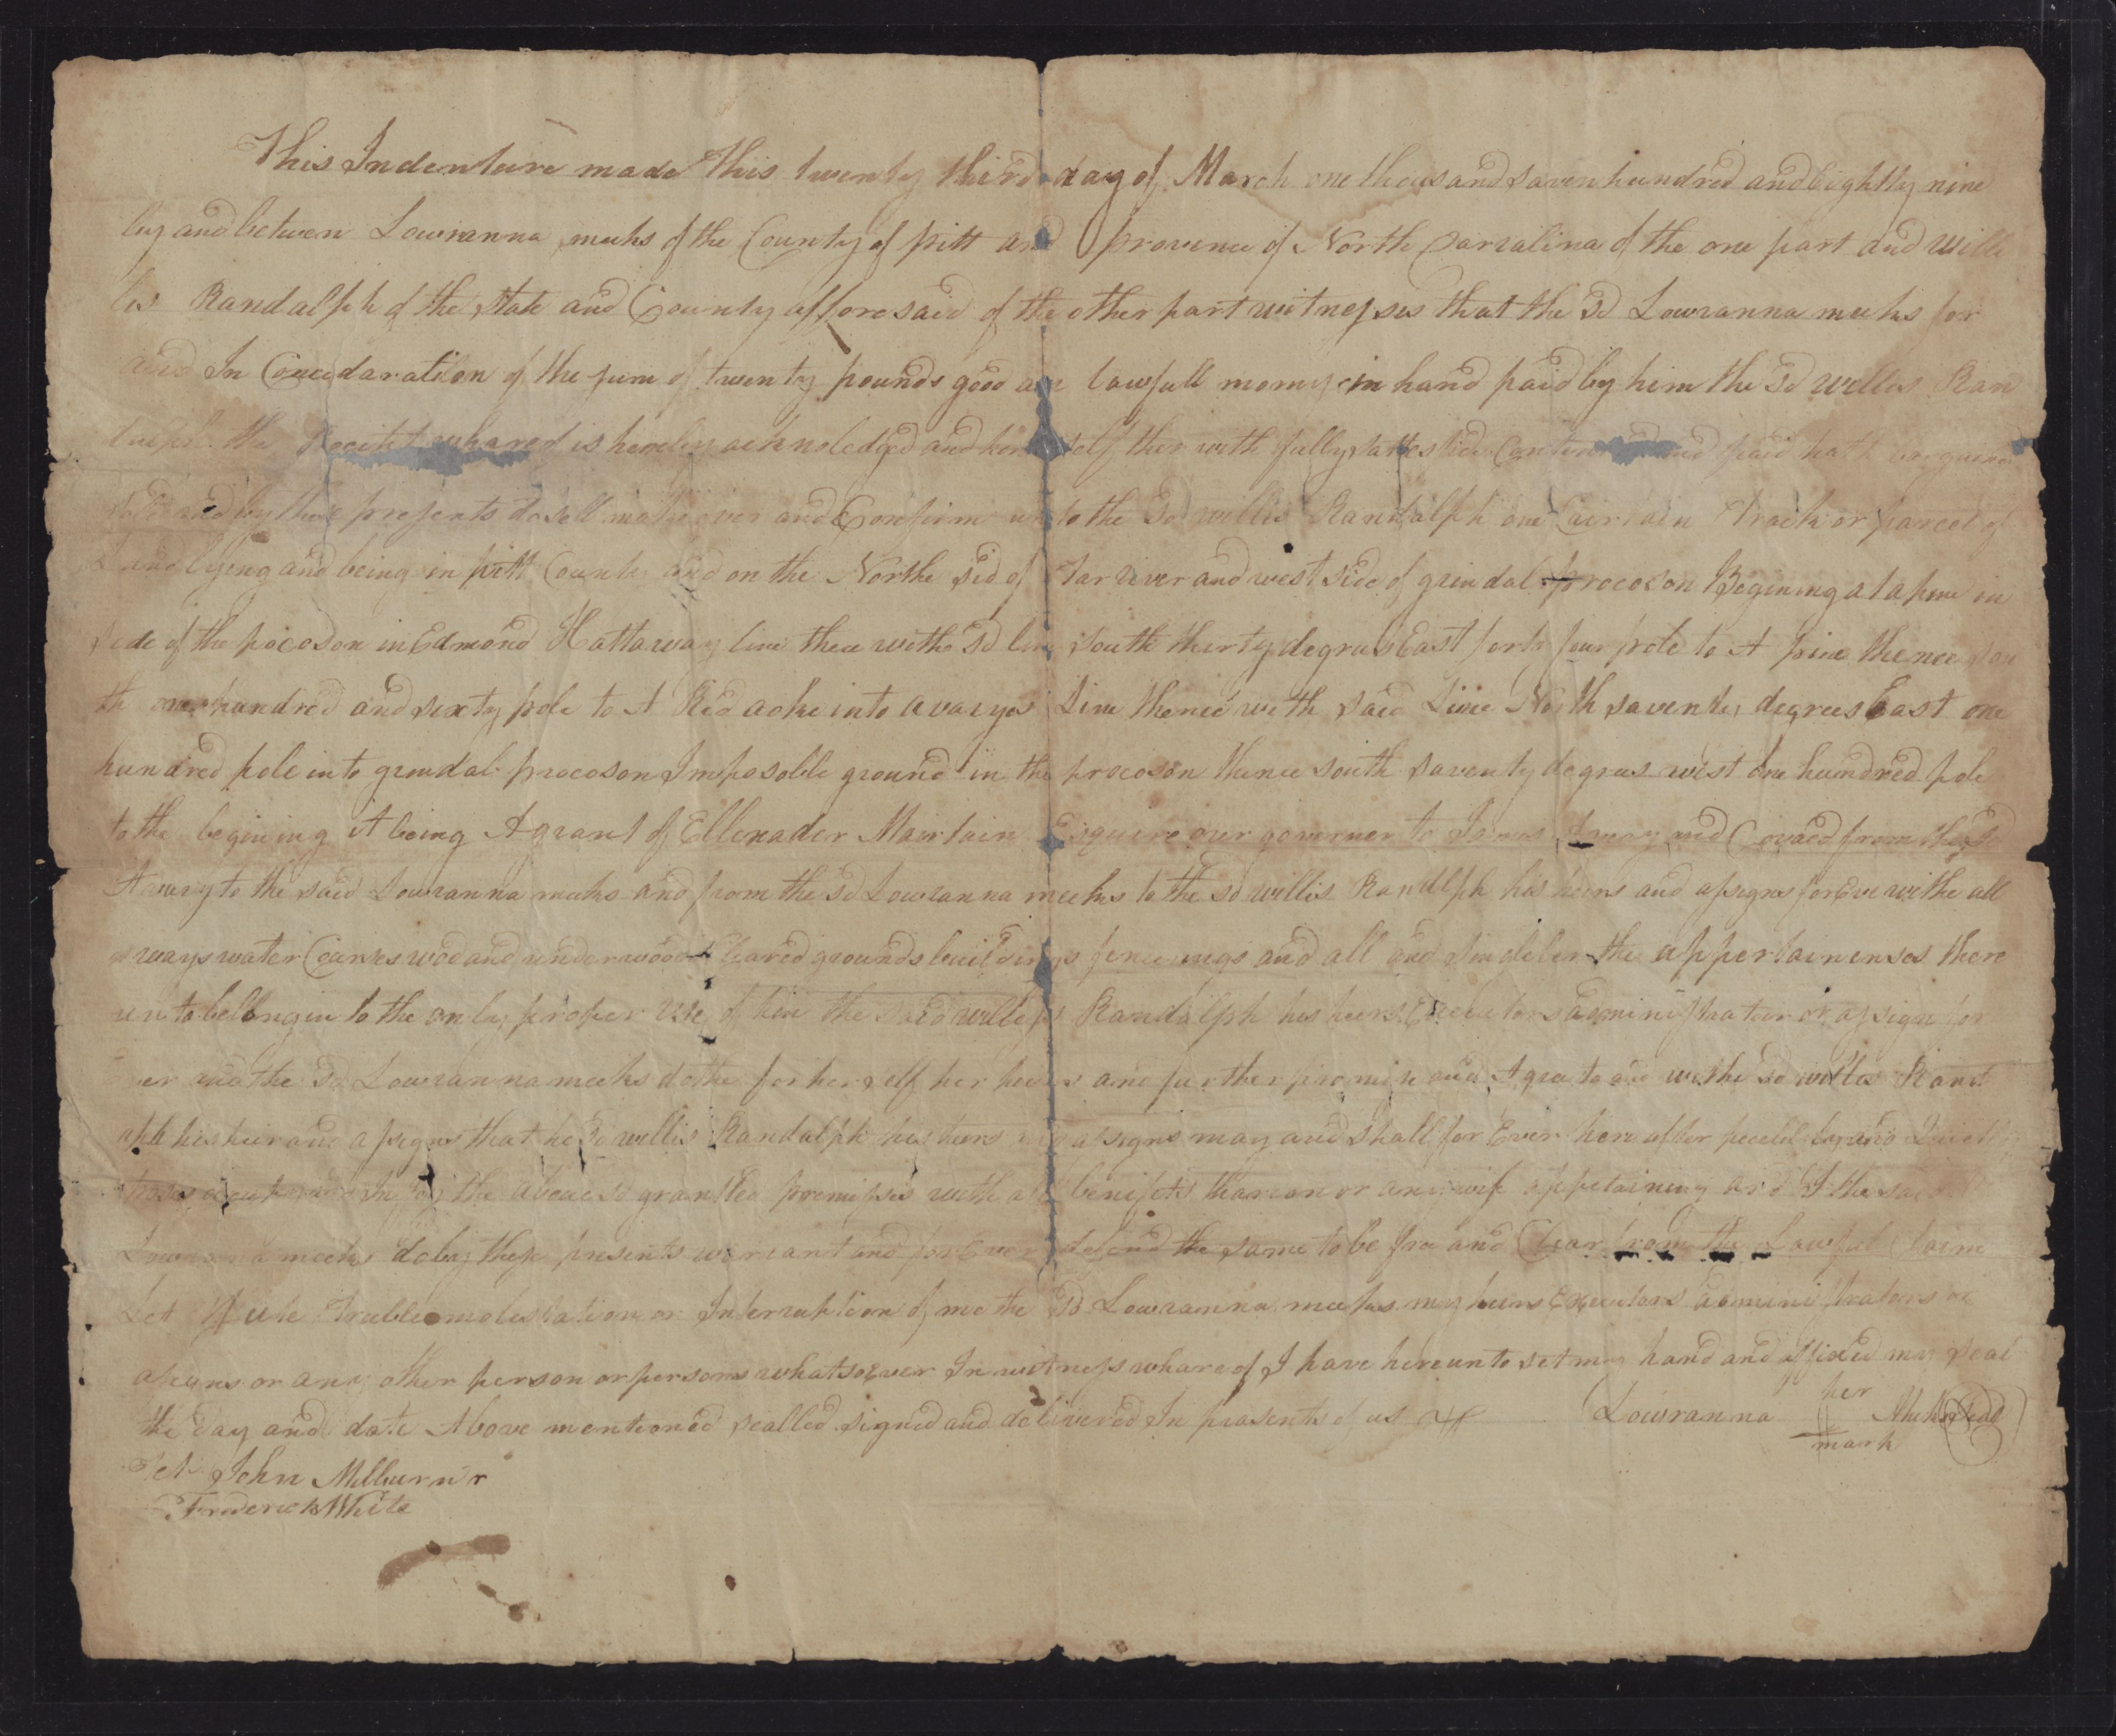 This Indenture made this twenty third day of March one thousand saven hundred and Eightty nine
by and betwen Lowranna meeks of the County of pitt and provence of North Carralina of the one part and Willi
Randalph of the State and County afforesaid of the other part witnesses that the sd Lowranna meeks for
and In of the sum of twenty pounds good lawfull mony in hand paid by him the sd willis Ran
the whareof is hereby acknoledged and self ther with fully and paid hath
and by these presents do sell make over and Confirm unto the sd willis Randalph one Cairtain Track or parcel of
Land lyeng and being in pitt County and on the Northe sid of Tar river and west side of grindal procoson Begining at a pine in
side of the pocoson in Edmond Hattaway line thence withe sd line south thirty degrees East forty four pole to A pine thence sou
th one hundred and sixty pole to A Red acke into line thence with said Line North saventy degrees East one
hundred pole into grindal procoson Imposoble ground in the procoson thence south saventy degrees west one hundred pole
to the begining it being A grant of Ellexader Mairtain Esquire our governer to James and from the sd
to the said Lowranna meeks and from the sd Lowranna meeks to the sd willis Randlph his heirs and assigns for Eve withe all
ways water woo and under wood Cleared grounds buildings fenceings and all and singeler the appertainenses there
unto belongin to the only proper use of him the said willis Randalph his heirs Executors administrator or assign for
ever and the sd Lowranna meeks dothe for her self her heirs and further promise and Agree to and withe sd willis Rand
alph his heir and assigns that he sd willis Randalph his heirs and assigns may and shall for Ever here after and
the above sd grantted premises with all benifets thareon or any wise appetaining and I the said
Lowranna meeks do by these presents warrant and for Ever defend the same to be free and Clear from the Lawful Claim
Trubble molestation or Interruption of me the sd Lowranna meeks my heirs Executors administrators or
assigns or any other person or persons whatsoever In witness whareof I have hereunto set my hand and affixed my seal
the day and date Above mentioned sealled signed and delivered In presents of us Lowranna her mark Meeks seal
Test John Milburn
Frederick White